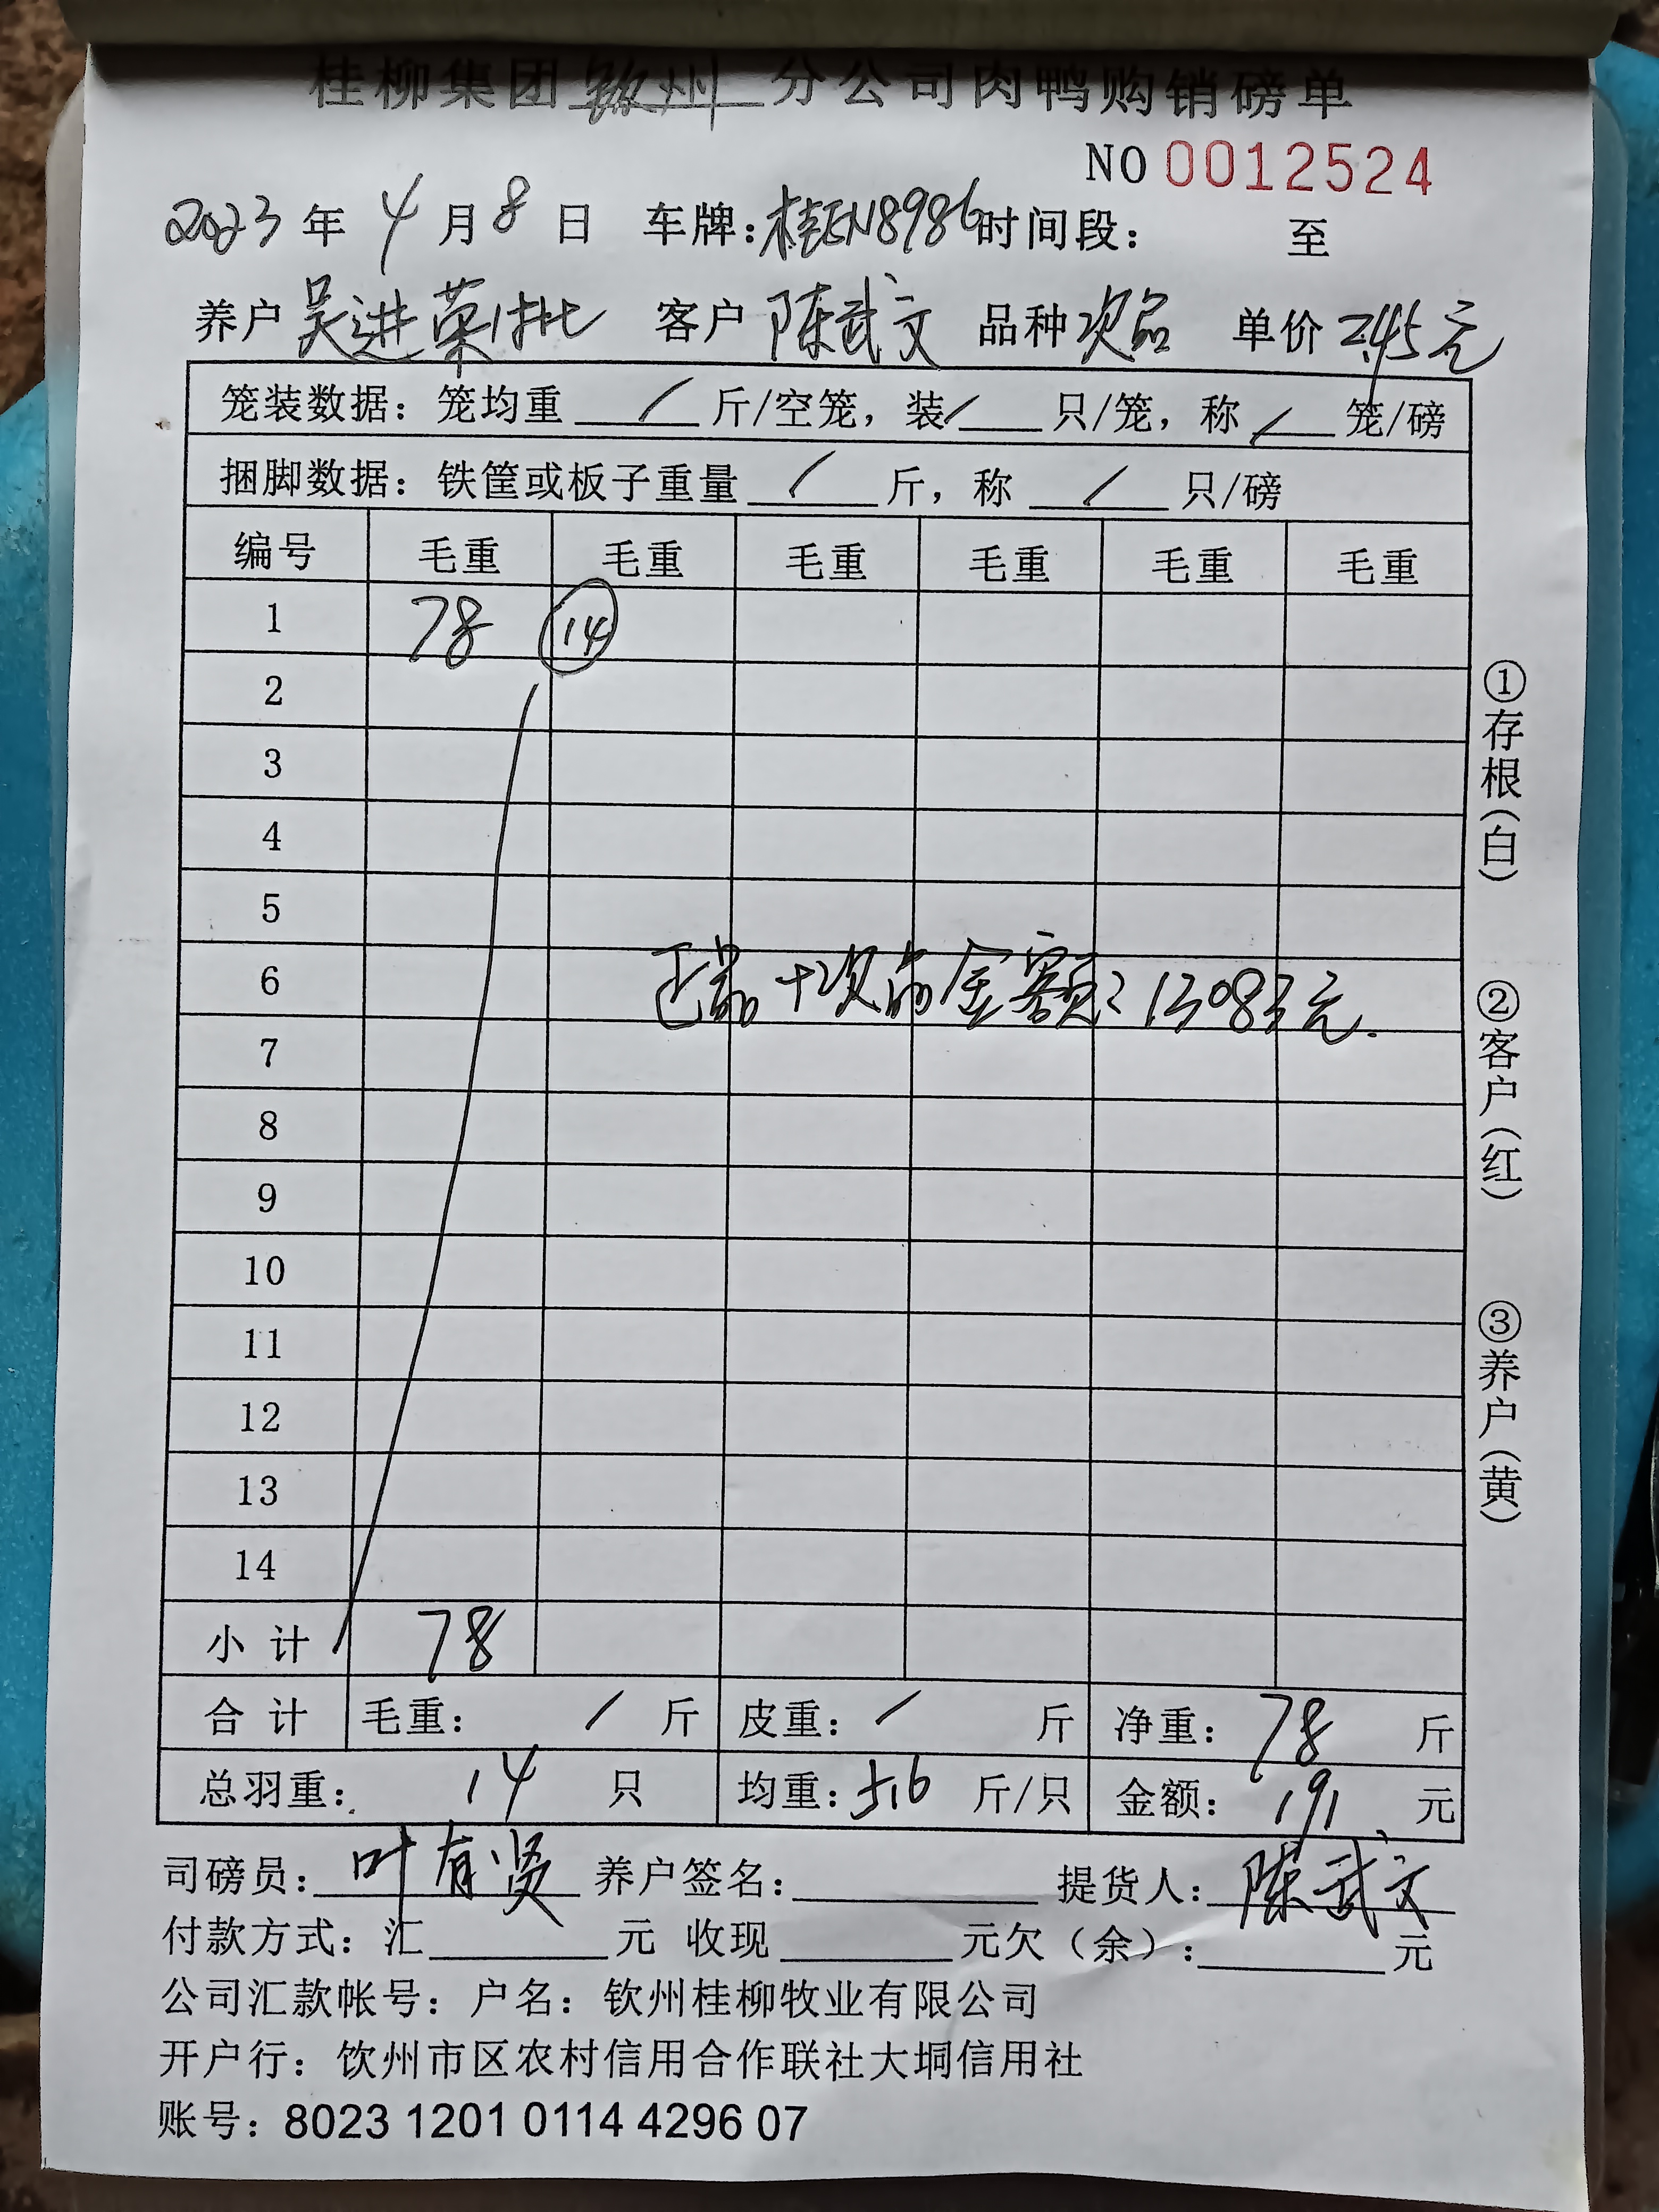 桂柳集团 钦州 分公司肉鸭购销磅单
NO 0012524
2023 年 4 月 8 日 车牌: 桂EN8986 时间段: 至
养户 吴进荣1批 客户 陈武文 品种 次品 单价 2.45元
笼装数据: 笼均重 / 斤/空笼, 装 / 只/笼, 称 / 笼/磅
捆脚数据: 铁筐或板子重量 / 斤, 称 / 只/磅
编号 毛重 毛重 毛重 毛重 毛重 毛重
1 78 14
2
3
4
5
6
正品+次品金额: 13083元.
7
8
9
10
11
12
13
14
小计 78
合计 毛重: / 斤 皮重: / 斤 净重: 78 斤
总羽重: 14 只 均重: 5.6 斤/只 金额: 191 元
司磅员: 叶有贤 养户签名: 提货人: 陈武文
付款方式: 汇 元 收现 元欠(余): 元
公司汇款帐号: 户名: 钦州桂柳牧业有限公司
开户行: 钦州市区农村信用合作联社大垌信用社
账号: 8023 1201 0114 4296 07
①存根(白)
②客户(红)
③养户(黄)